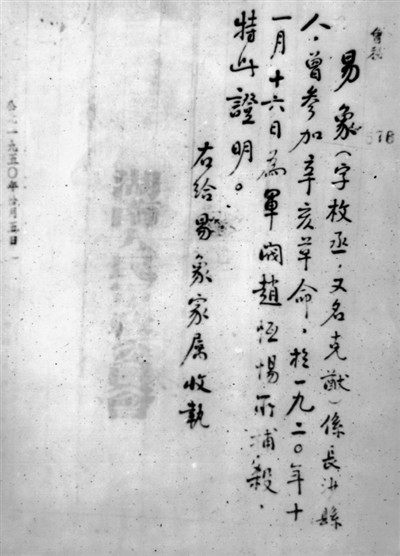 易象(字枚丞,又名克猷)係長沙縣
人,曾參加辛亥革命,於一九二〇年十
一月十六日為軍閥趙恆惕所捕殺.
特此證明。
右給易象家属收執
一九五〇年 月五日